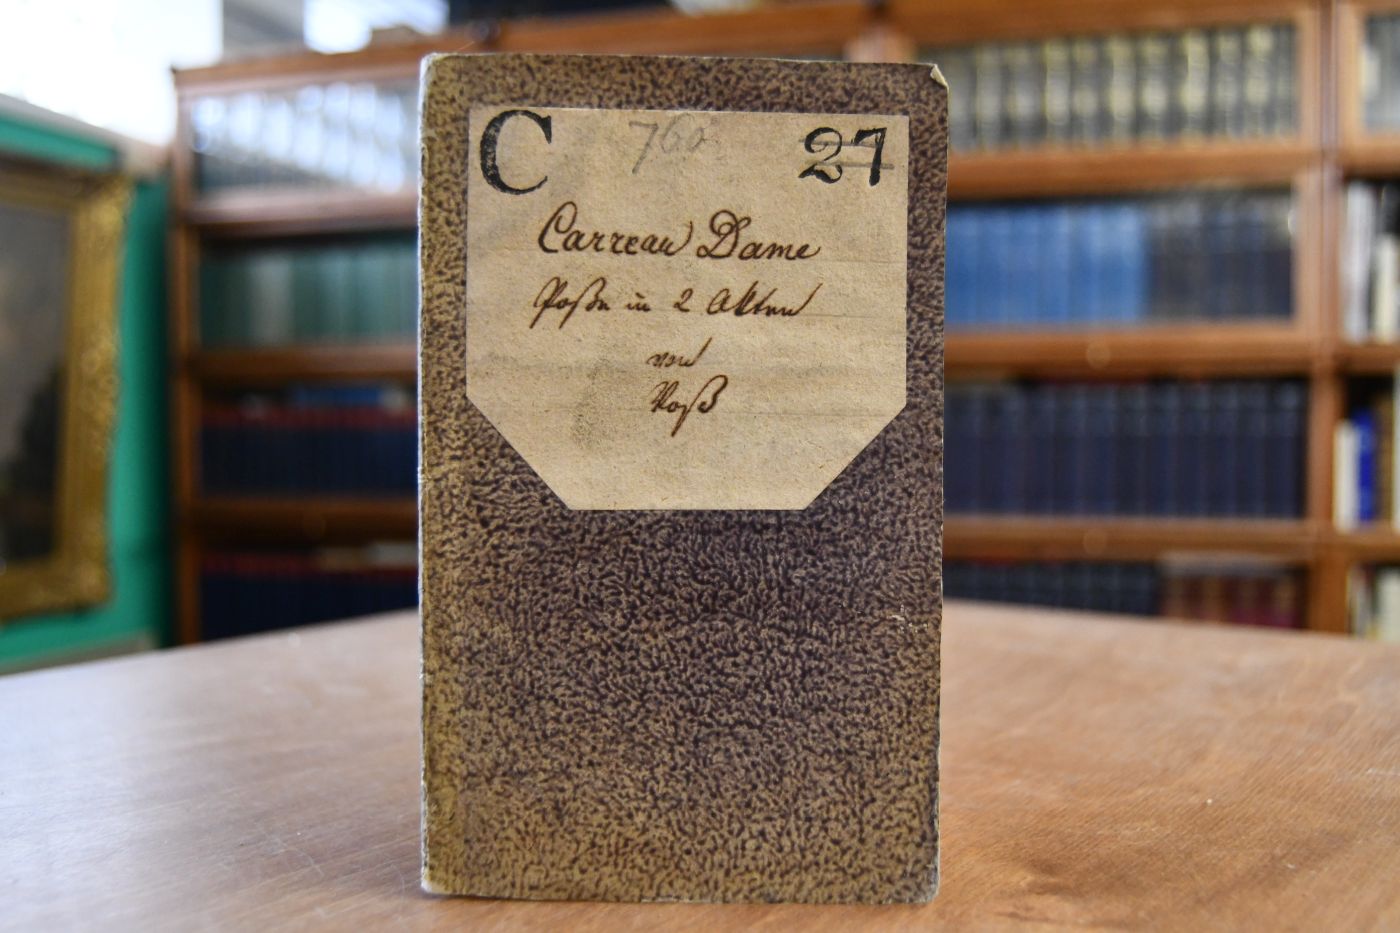 C 760 27
Carreau Dame
Posse in 2 Akten
von
Voß